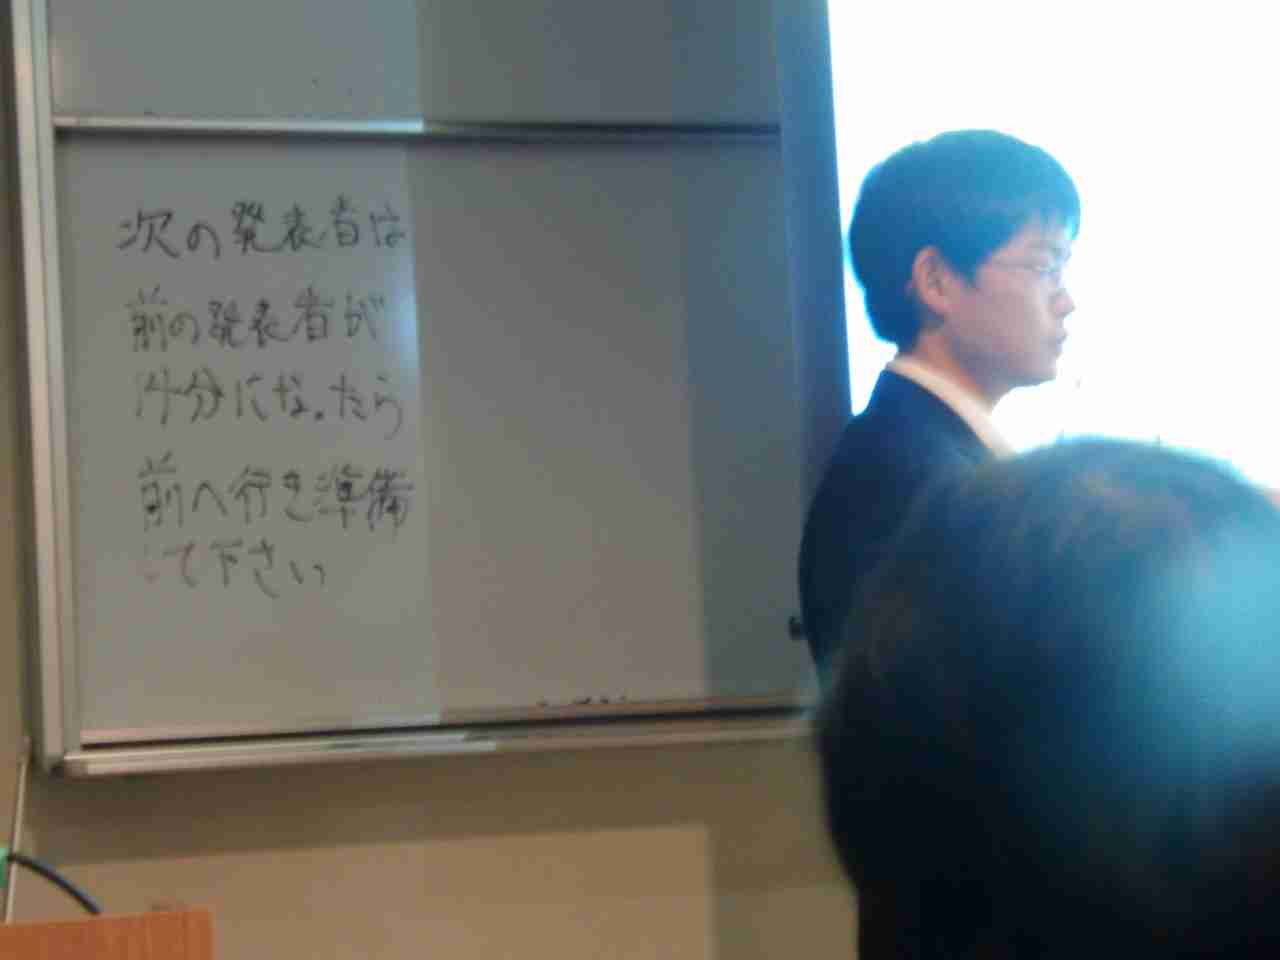 次の発表者は
前の発表者が
14分になったら
前へ行き準備
して下さい